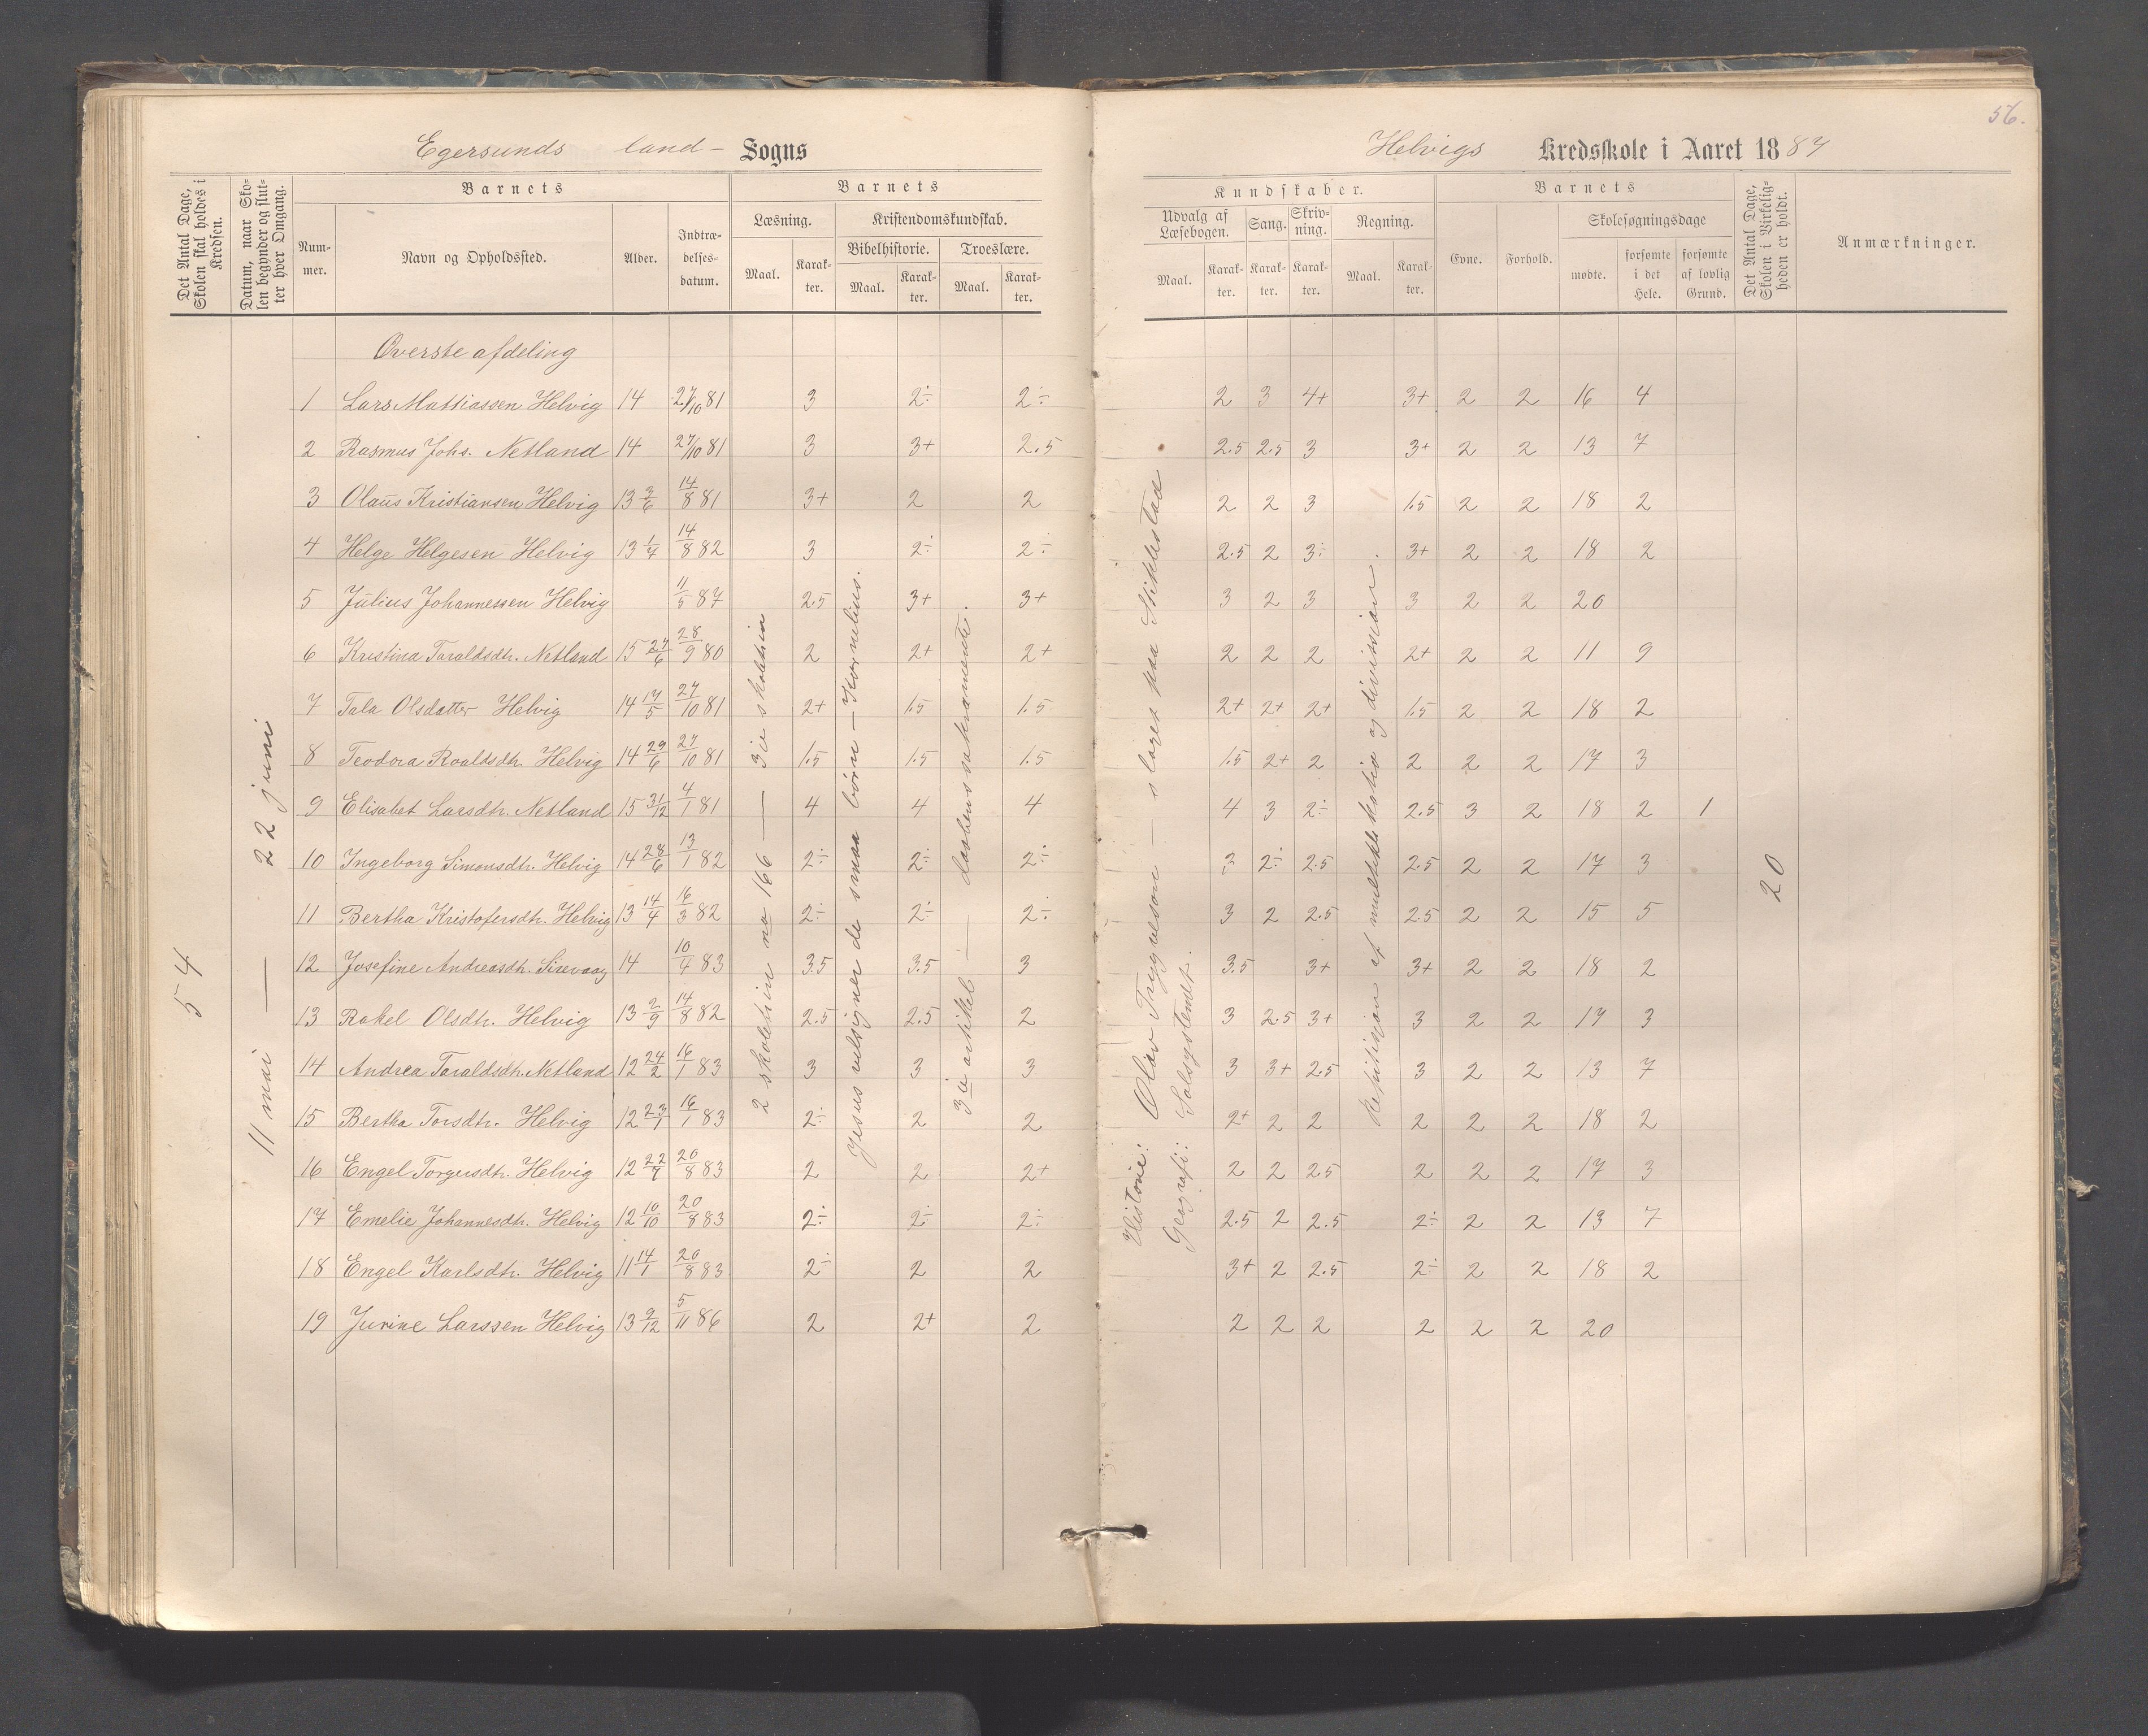 56.
Egersunds land- Sogns
Helvigs Kredsskole i Aaret 1887
Det Antal Dage, Skolen skal holdes i Kredsen.
Datum, naar Skolen begynder og slutter hver Omgang.
Barnets
Nummer.
Navn og Opholdssted.
Alder.
Indtrædelsesdatum.
Barnets
Læsning.
Maal.
Karakter.
Kristendomskundskab.
Bibelhistorie.
Maal.
Karakter.
Troeslære.
Maal.
Karakter.
Kundskaber.
Udvalg af Læsebogen.
Maal.
Karakter.
Sang.
Karakter.
Skrivning.
Karakter.
Regning.
Maal.
Karakter.
Barnets
Evne.
Forhold.
Skolesøgningsdage
mødte.
forsømte i det Hele.
forsømte af lovlig Grund.
Det Antal Dage, Skolen i Virkeligheden er holdt.
Anmærkninger.
54
11 mai — 22 juni
Øverste afdeling
1 Lars Mattiassen Helvig 14 27/10 81 3 2÷ 2÷ 2 3 4+ 3+ 2 2 16 4
2 Rasmus Johs. Netland 14 27/10 81 3 3+ 2.5 2.5 2.5 3 3+ 2 2 13 7
3 Olaus Kristiansen Helvig 13 3/6 14/8 81 3+ 2 2 2 2 3 1.5 2 2 18 2
4 Helge Helgesen Helvig 13 1/4 14/8 82 3 2÷ 2÷ 2.5 2 3÷ 3+ 2 2 18 2
5 Julius Johannessen Helvig 11/5 87 2.5 3+ 3+ 3 2 3 3 2 2 20
6 Kristina Taraldsdtr. Netland 15 27/6 28/9 80 2 2+ 2+ 2 2 2 2+ 2 2 11 9
7 Tala Olsdatter Helvig 14 17/5 27/10 81 2+ 1.5 1.5 2+ 2+ 2+ 1.5 2 2 18 2
8 Teodora Roaldsdtr. Helvig 14 29/6 27/10 81 1.5 1.5 1.5 1.5 2+ 2 2 2 2 17 3
9 Elisabet Larsdtr. Netland 15 31/12 4/1 81 4 4 4 4 3 2÷ 2.5 3 2 18 2 1
10 Ingeborg Simonsdtr. Helvig 14 28/6 13/1 82 2÷ 2÷ 2÷ 3 2÷ 2.5 2.5 2 2 17 3
11 Bertha Kristofersdtr. Helvig 13 14/4 16/3 82 2÷ 2÷ 2÷ 3 2 2.5 2.5 2 2 15 5
12 Josefine Andreasdtr. Sirevaag 14 10/4 83 3.5 3.5 3 3.5 3+ 3+ 2 2 18 2
13 Rakel Olsdtr. Helvig 13 2/9 14/8 82 2.5 2.5 2 3 2.5 3+ 3 2 2 17 3
14 Andrea Taraldsdtr. Netland 12 24/2 16/1 83 3 3 3 3 3+ 2.5 3 2 2 13 7
15 Bertha Torsdtr. Helvig 12 23/1 16/1 83 2÷ 2 2 2+ 2 2 2 2 2 18 2
16 Engel Torgersdtr. Helvig 12 22/7 20/8 83 2 2 2+ 2 2 2.5 2 2 2 17 3
17 Emelie Johannesdtr. Helvig 12 10/10 20/8 83 2÷ 2÷ 2÷ 2.5 2 2.5 2÷ 2 2 13 7
18 Engel Karlsdtr. Helvig 11 14/1 20/8 83 2÷ 2 2 3+ 2 2.5 2÷ 2 2 18 2
19 Jurine Larssen Helvig 13 9/12 5/11 86 2 2+ 2 2 2 2 2 2 2 20
2 skoletrin no 166 — 3die skoletrin
Jesus velsigner de smaa børn — Kornelius.
3die artikel — daabens sakramente.
Historie: Olav Trygvesøn — slaget paa Stiklestad
Geografi: Solsystemet.
Repitisjon af multiplikation og divisjon.
20